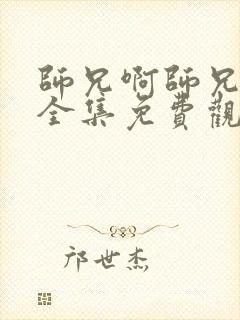 師兄啊師兄
全集免費觀
邝世杰